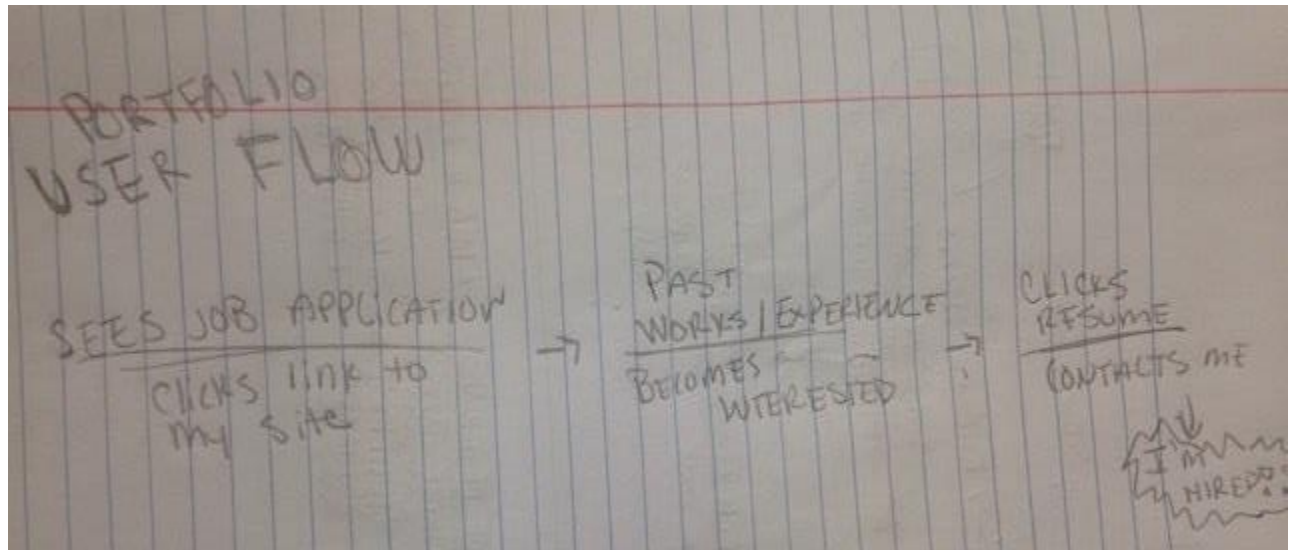 PORTFOLIO
USER FLOW
SEES JOB APPLICATION
Clicks link to
my site
→
PAST
WORKS / EXPERIENCE
BECOMES
INTERESTED
→
CLICKS
RESUME
CONTACTS ME
I'M
HIRED!!